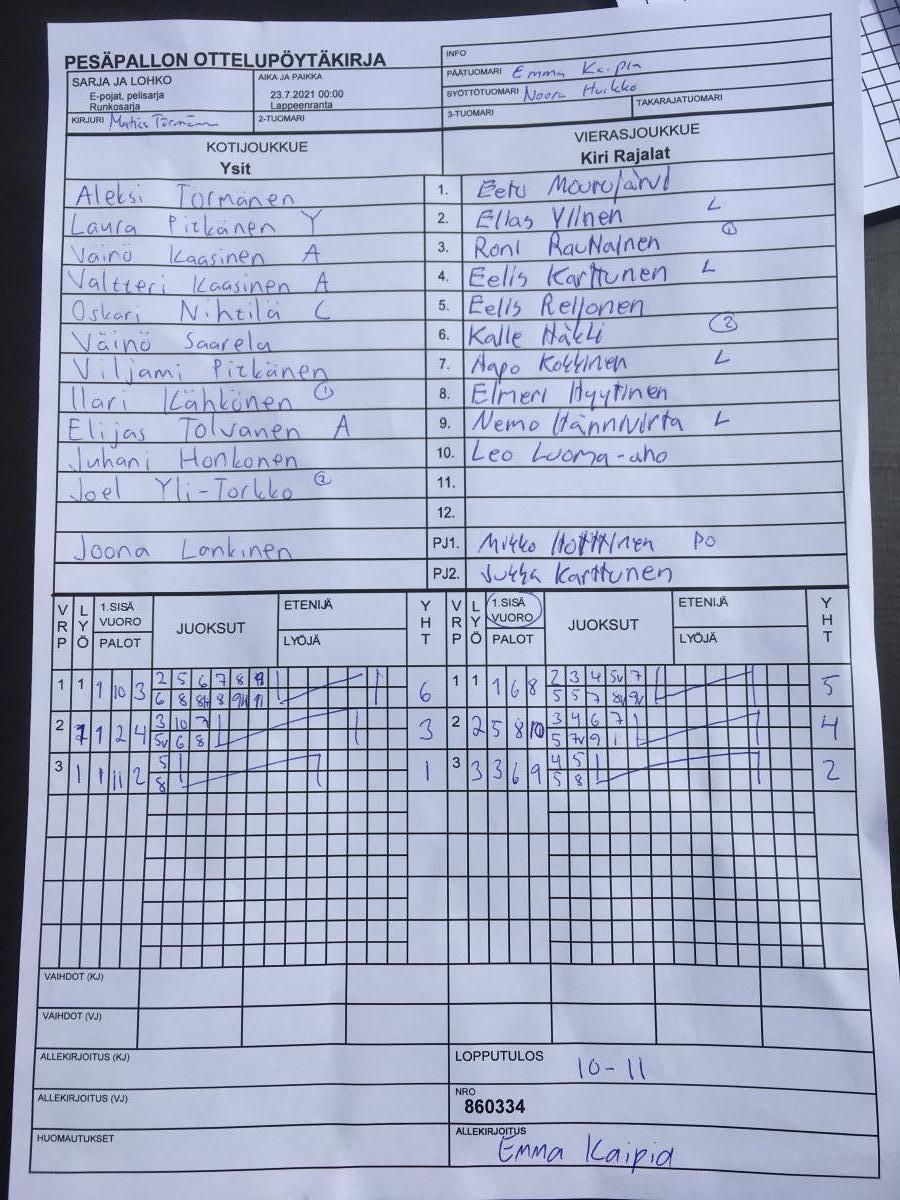 PESÄPALLON OTTELUPÖYTÄKIRJA
INFO
SARJA JA LOHKO
E-pojat, pelisarja
Runkosarja
AIKA JA PAIKKA
23.7.2021 00:00
Lappeenranta
PÄÄTUOMARI Emma Kaipia
SYÖTTÖTUOMARI Noora Huikko
KIRJURI Matias Törmänen
2-TUOMARI
3-TUOMARI
TAKARAJATUOMARI
KOTIJOUKKUE
Ysit
VIERASJOUKKUE
Kiri Rajalat
Aleksi Törmänen 1. Eetu Mourujärvi
Laura Pitkänen Y 2. Elias Ylinen L
Väinö Kaasinen A 3. Roni Rautiainen 1
Valtteri Kaasinen A 4. Eelis Karttunen L
Oskari Nihtilä C 5. Eelis Reijonen
Väinö Saarela 6. Kalle Häkli 2
Viljami Pitkänen 7. Aapo Kokkinen L
Ilari Kähkönen 1 8. Elmeri Hyytinen
Elijas Tolvanen A 9. Nemo Hännivirta L
Juhani Honkonen 10. Leo Luoma-aho
Joel Yli-Torkko 2 11.
12.
Joona Lankinen PJ1. Mikko PO
PJ2. Jukka Karttunen
VRP LYÖ 1.SISÄ VUORO PALOT JUOKSUT ETENIJÄ LYÖJÄ YHT VRP LYÖ 1.SISÄ VUORO PALOT JUOKSUT ETENIJÄ LYÖJÄ YHT
1 1 1 10 3 2 5 6 7 8 9 6 1 1 1 6 8 2 3 4 5v 7 5
6 8 8 5 5 7 8v 9v
2 1 2 4 3 10 7 3 2 2 5 8 10 3 4 6 7 4
5v 6 8 5 7v 9 1
3 1 1 11 2 5 1 3 3 3 6 9 4 5 2
8 5 8
VAIHDOT (KJ)
VAIHDOT (VJ)
ALLEKIRJOITUS (KJ)
LOPPUTULOS 10-11
ALLEKIRJOITUS (VJ)
NRO
860334
HUOMAUTUKSET
ALLEKIRJOITUS
Emma Kaipia